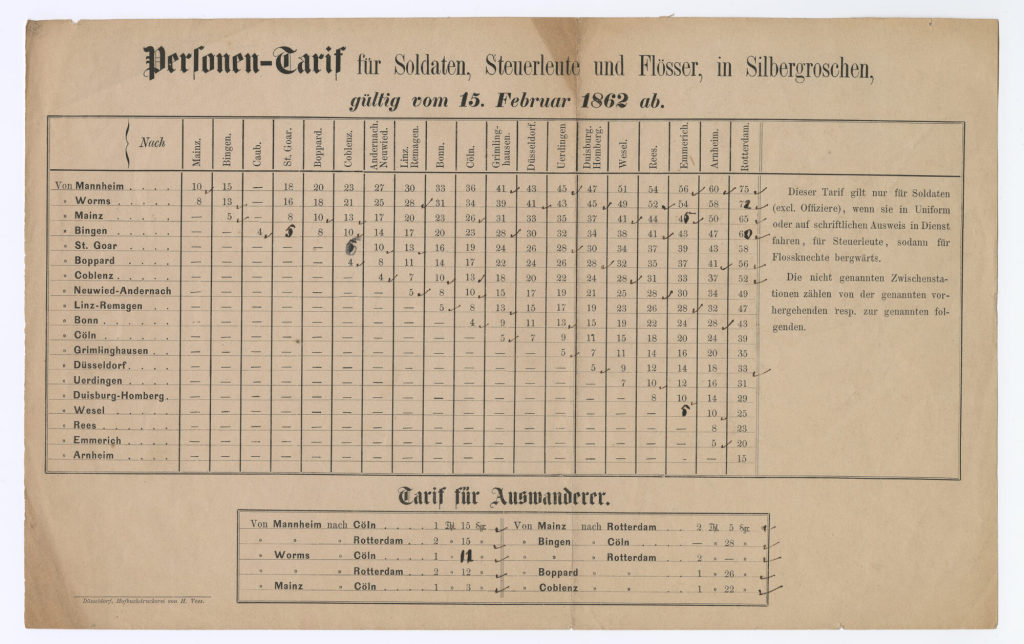 Personen-Tarif für Soldaten, Steuerleute und Flösser, in Silbergroschen,
gültig vom 15. Februar 1862 ab.
Nach Mainz. Bingen. Caub. St. Goar. Boppard. Coblenz. Andernach. Neuwied. Linz. Remagen. Bonn. Cöln. Grimlinghausen. Düsseldorf. Uerdingen Duisburg. Homberg. Wesel. Rees. Emmerich. Arnheim. Rotterdam.
Von Mannheim . . . . 10 15 — 18 20 23 27 30 33 36 41 43 45 47 51 54 56 60 75
" Worms . . . . 8 13 — 16 18 21 25 28 31 34 39 41 43 45 49 52 54 58 72
" Mainz . . . . — 5 — 8 10 13 17 20 23 26 31 33 35 37 41 44 45 50 65
" Bingen . . . . — — 4 5 8 10 14 17 20 23 28 30 32 34 38 41 43 47 60
" St. Goar . . . . — — — — — 6 10 13 16 19 24 26 28 30 34 37 39 43 58
" Boppard . . . . — — — — — 4 8 11 14 17 22 24 26 28 32 35 37 41 56
" Coblenz . . . . — — — — — — 4 7 10 13 18 20 22 24 28 31 33 37 52
" Neuwied-Andernach — — — — — — — 5 8 10 15 17 19 21 25 28 30 34 49
" Linz-Remagen . . — — — — — — — — 5 8 13 15 17 19 23 26 28 32 47
" Bonn . . . . — — — — — — — — — 4 9 11 13 15 19 22 24 28 43
" Cöln . . . . — — — — — — — — — — 5 7 9 11 15 18 20 24 39
" Grimlinghausen . . — — — — — — — — — — — — 5 7 11 14 16 20 35
" Düsseldorf . . . . — — — — — — — — — — — — — 5 9 12 14 18 33
" Uerdingen . . . . — — — — — — — — — — — — — — 7 10 12 16 31
" Duisburg-Homberg . — — — — — — — — — — — — — — — 8 10 14 29
" Wesel . . . . — — — — — — — — — — — — — — — — 5 10 25
" Rees . . . . — — — — — — — — — — — — — — — — — 8 23
" Emmerich . . . . — — — — — — — — — — — — — — — — — 5 20
" Arnheim . . . . — — — — — — — — — — — — — — — — — — 15
Dieser Tarif gilt nur für Soldaten
(excl. Offiziere), wenn sie in Uniform
oder auf schriftlichen Ausweis in Dienst
fahren, für Steuerleute, sodann für
Flossknechte bergwärts.
Die nicht genannten Zwischensta-
tionen zählen von der genannten vor-
hergehenden resp. zur genannten fol-
genden.
Tarif für Auswanderer.
Von Mannheim nach Cöln . . . . 1 Thl. 15 Sgr. Von Mainz nach Rotterdam . . . 2 Thl. 5 Sgr.
" " " Rotterdam . . 2 " 15 " " Bingen " Cöln . . . . — " 28 "
" Worms " Cöln . . . . 1 " 11 " " " " Rotterdam . . . 2 " — "
" " " Rotterdam . . 2 " 12 " " Boppard " " . . . 1 " 26 "
" Mainz " Cöln . . . . 1 " 3 " " Coblenz " " . . . 1 " 22 "
Düsseldorf, Hofbuchdruckerei von H. Voss.